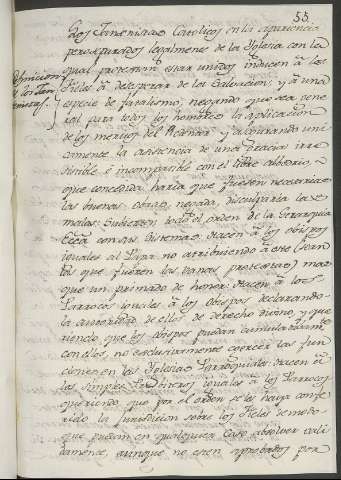 55
Los Jansenistas Catolicos en la apariencia
pero separados legalmente de la Iglesia con la
qual protestan estar unidos inducen â los
Fieles â desesperar de la Salvacion, y â una
especie de fatalismo, negando que sea gene
ral para todos los hombres la aplicacion
de los meritos del Redentor, y asegurando uni
camente la asistencia de una Gracia irre
sistible, è incompatible con el libre albedrio,
que concedida, haria que fuesen necesarias
las buenas obras, negada, disculparia las
malas. Subierten todo el orden de la Gerarquia
con sus sistemas. Hacen â los obispos
iguales al Papa, no atribuiendo â este (sean
las que fueren las vanas protestas) mas
que un primado de honor. Hacen â los
Parrocos iguales â los Obispos declarando
la autoridad de ellos de derecho divino, y que
riendo, que los obispos puedan cumulativamte
con ellos, no esclusivamente exercer las fun
ciones en las Iglesias Parroquiales. Hacen â
los simples Sacerdotes iguales â los Parrocos
queriendo que por el orden se les haiga confe
rido la Jurisdicion sobre los Fieles de modo
que puedan en qualquiera caso absolver vali
damente, aunque no esten aprobados por